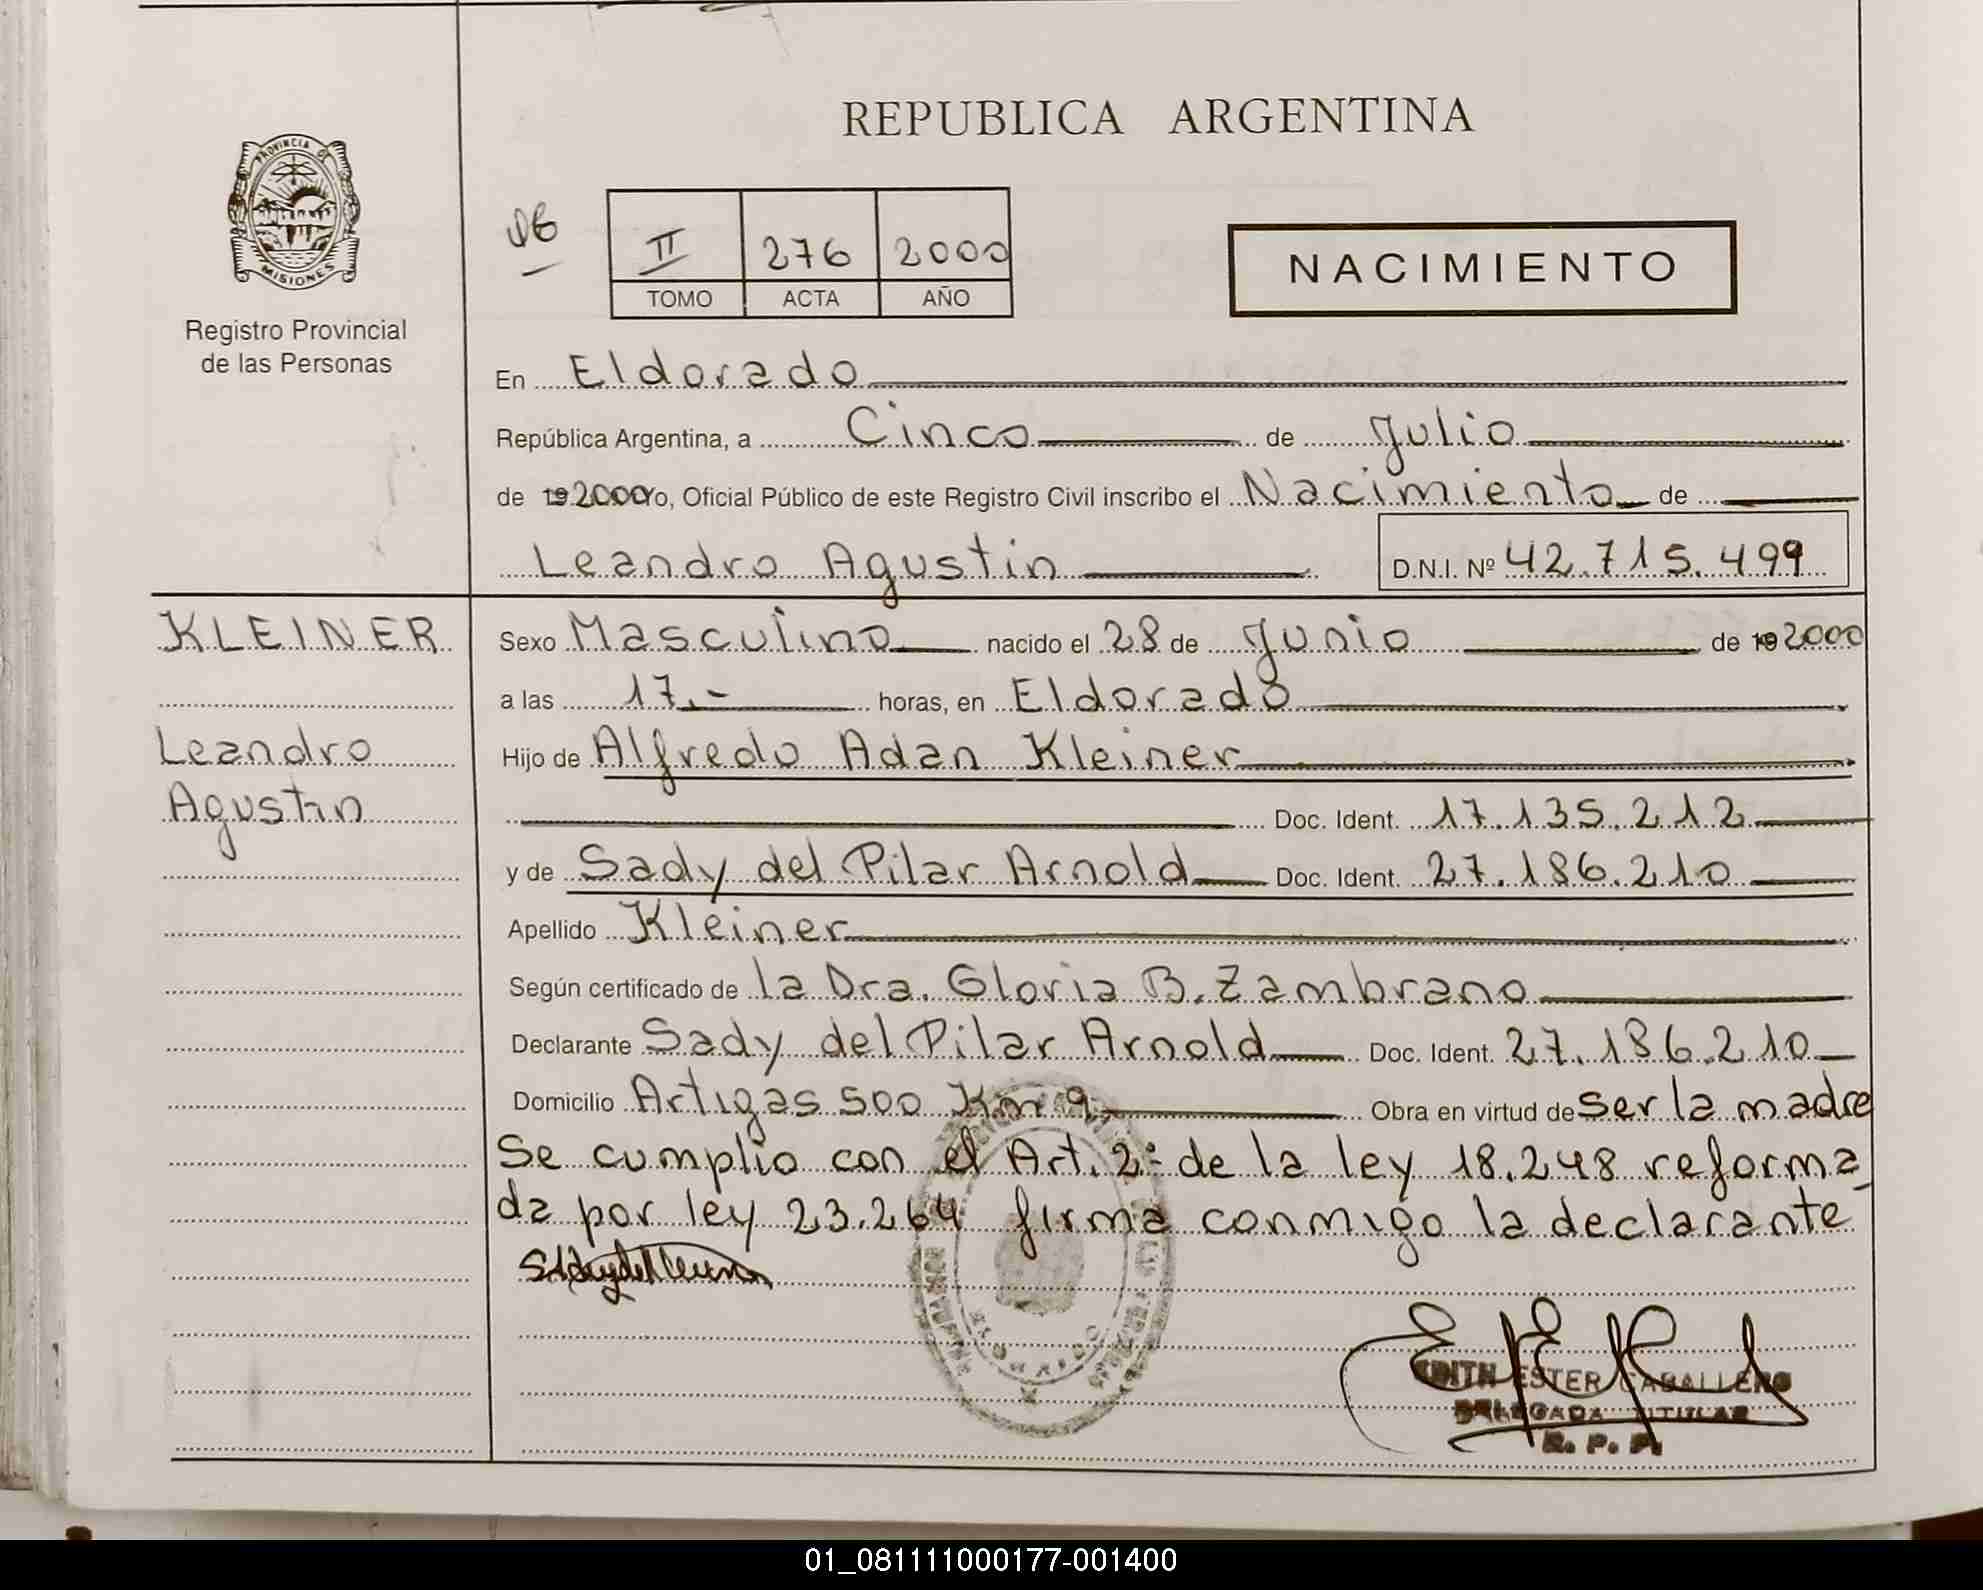 REPUBLICA ARGENTINA
PROVINCIA DE
MISIONES
Registro Provincial
de las Personas
II 276 2000
TOMO ACTA AÑO
NACIMIENTO
En Eldorado
República Argentina, a Cinco de Julio
de 19 2000 Yo, Oficial Público de este Registro Civil inscribo el Nacimiento de
Leandro Agustin D.N.I. Nº 42.715.499
KLEINER
Leandro
Agustin
Sexo Masculino nacido el 28 de Junio de 19 2000
a las 17.- horas, en Eldorado
Hijo de Alfredo Adan Kleiner
Doc. Ident. 17.135.212
y de Sady del Pilar Arnold Doc. Ident. 27.186.210
Apellido Kleiner
Según certificado de la Dra. Gloria B. Zambrano
Declarante Sady del Pilar Arnold Doc. Ident. 27.186.210
Domicilio Artigas 500 Km 9 Obra en virtud de ser la madre
Se cumplio con el Art. 2º de la ley 18.248 reforma
da por ley 23.264 firma conmigo la declarante
EDITH ESTER CABALLERO
DELEGADA TITULAR
R. P. P.
01_081111000177-001400